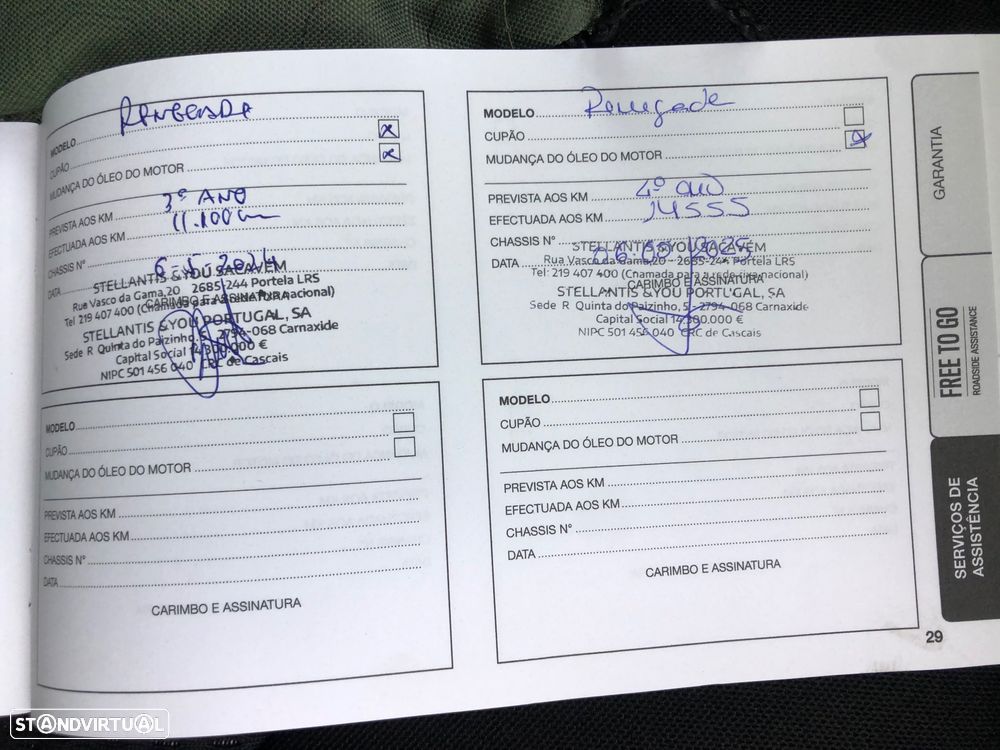 RENEGADE
MODELO
CUPÃO
x
MUDANÇA DO ÓLEO DO MOTOR
x
PREVISTA AOS KM 3º ANO
EFECTUADA AOS KM 11.100 km
CHASSIS Nº
DATA 6-5-2024
CARIMBO E ASSINATURA
STELLANTIS &YOU SACAVÉM
Rua Vasco da Gama,20 2685-244 Portela LRS
Tel 219 407 400 (Chamada para a rede fixa nacional)
STELLANTIS &YOU PORTUGAL, SA
Sede R Quinta do Paizinho, 5 2794-068 Carnaxide
Capital Social 14.300.000 €
NIPC 501 456 040 CRC de Cascais
Renegade
MODELO
CUPÃO
MUDANÇA DO ÓLEO DO MOTOR
x
PREVISTA AOS KM 4º ano
EFECTUADA AOS KM 14555
CHASSIS Nº
DATA
CARIMBO E ASSINATURA
STELLANTIS &YOU SACAVÉM
Rua Vasco da Gama,20 2685-244 Portela LRS
Tel: 219 407 400 (Chamada para a rede fixa nacional)
STELLANTIS &YOU PORTUGAL, SA
Sede R Quinta do Paizinho, 5 - 2794-068 Carnaxide
Capital Social 14.300.000 €
NIPC 501 456 040 CRC de Cascais
MODELO
CUPÃO
MUDANÇA DO ÓLEO DO MOTOR
PREVISTA AOS KM
EFECTUADA AOS KM
CHASSIS Nº
DATA
CARIMBO E ASSINATURA
MODELO
CUPÃO
MUDANÇA DO ÓLEO DO MOTOR
PREVISTA AOS KM
EFECTUADA AOS KM
CHASSIS Nº
DATA
CARIMBO E ASSINATURA
GARANTIA
FREE TO GO
ROADSIDE ASSISTANCE
SERVIÇOS DE
ASSISTÊNCIA
29
STANDVIRTUAL